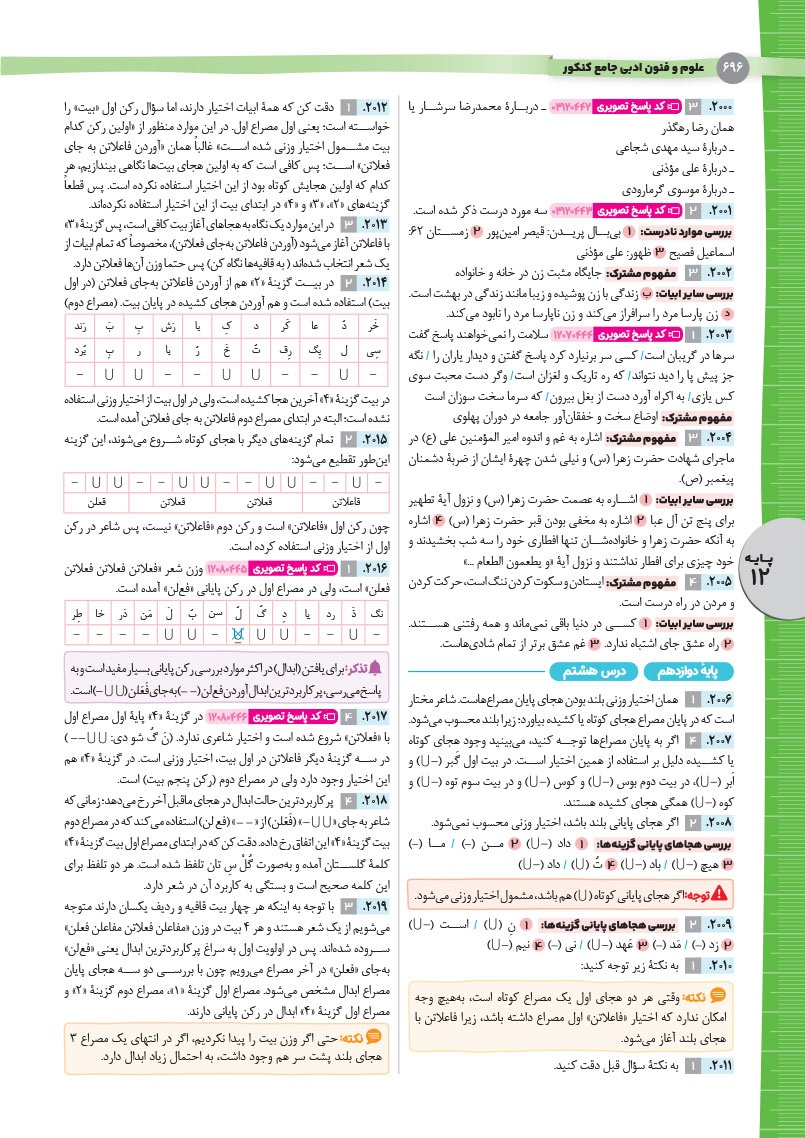 ۶۹۶ علوم و فنون ادبی جامع کنکور
۲۰۰۰. ۳ کد پاسخ تصویری ۰۳۱۲۰۴۴۲ ـ دربارهٔ محمدرضا سرشار یا
همان رضا رهگذر
ـ دربارهٔ سید مهدی شجاعی
ـ دربارهٔ علی مؤذنی
ـ دربارهٔ موسوی گرمارودی
۲۰۰۱. ۲ کد پاسخ تصویری ۰۳۱۲۰۴۴۳ سه مورد درست ذکر شده است.
بررسی موارد نادرست: ۱ بی‌بال پریدن: قیصر امین‌پور ۲ زمستان ۶۲:
اسماعیل فصیح ۳ ظهور: علی مؤذنی
۲۰۰۲. ۳ مفهوم مشترک: جایگاه مثبت زن در خانه و خانواده
بررسی سایر ابیات: ب زندگی با زن پوشیده و زیبا مانند زندگی در بهشت است.
د زن پارسا مرد را سرافراز می‌کند و زن ناپارسا مرد را نابود می‌کند.
۲۰۰۳. ۱ کد پاسخ تصویری ۱۲۰۷۰۴۴۴ سلامت را نمی‌خواهند پاسخ گفت
سرها در گریبان است/ کسی سر برنیارد کرد پاسخ گفتن و دیدار یاران را / نگه
جز پیش پا را دید نتواند/ که ره تاریک و لغزان است/ وگر دست محبت سوی
کس یازی/ به اکراه آورد دست از بغل بیرون/ که سرما سخت سوزان است
مفهوم مشترک: اوضاع سخت و خفقان‌آور جامعه در دوران پهلوی
۲۰۰۴. ۳ مفهوم مشترک: اشاره به غم و اندوه امیر المؤمنین علی (ع) در
ماجرای شهادت حضرت زهرا (س) و نیلی شدن چهرهٔ ایشان از ضربهٔ دشمنان
پیغمبر (ص).
بررسی سایر ابیات: ۱ اشاره به عصمت حضرت زهرا (س) و نزول آیهٔ تطهیر
برای پنج تن آل عبا ۲ اشاره به مخفی بودن قبر حضرت زهرا (س) ۴ اشاره
به آنکه حضرت زهرا و خانواده‌شان تنها افطاری خود را سه شب بخشیدند و
خود چیزی برای افطار نداشتند و نزول آیهٔ «و یطعمون الطعام ...»
۲۰۰۵. ۴ مفهوم مشترک: ایستادن و سکوت کردن ننگ است، حرکت کردن
و مردن در راه درست است.
بررسی سایر ابیات: ۱ کسی در دنیا باقی نمی‌ماند و همه رفتنی هستند.
۲ راه عشق جای اشتباه ندارد. ۳ غم عشق برتر از تمام شادی‌هاست.
پایهٔ دوازدهم درس هشتم
۲۰۰۶. ۱ همان اختیار وزنی بلند بودن هجای پایان مصراع‌هاست. شاعر مختار
است که در پایان مصراع هجای کوتاه یا کشیده بیاورد؛ زیرا بلند محسوب می‌شود.
۲۰۰۷. ۴ اگر به پایان مصراع‌ها توجه کنید، می‌بینید وجود هجای کوتاه
یا کشیده دلیل بر استفاده از همین اختیار است. در بیت اول گَبر (–U) و
اَبر (–U)، در بیت دوم بوس (–U) و کوس (–U) و در بیت سوم توه (–U) و
کوه (–U) همگی هجای کشیده هستند.
۲۰۰۸. ۲ اگر هجای پایانی بلند باشد، اختیار وزنی محسوب نمی‌شود.
بررسی هجاهای پایانی گزینه‌ها: ۱ داد (–U) ۲ من (–) / ما (–)
۳ هیچ (–U) / باد (–U) ۴ تُ (U) / داد (–U)
توجه: اگر هجای پایانی کوتاه (U) هم باشد، مشمول اختیار وزنی می‌شود.
۲۰۰۹. ۲ بررسی هجاهای پایانی گزینه‌ها: ۱ نِ (U) / است (–U)
۲ زد (–) / مَد (–) ۳ عَهد (–U) / تی (–) ۴ نیم (–U)
۲۰۱۰. ۱ به نکتهٔ زیر توجه کنید:
نکته: وقتی هر دو هجای اول یک مصراع کوتاه است، به‌هیچ وجه
امکان ندارد که اختیار «فاعلاتن» اول مصراع داشته باشد، زیرا فاعلاتن با
هجای بلند آغاز می‌شود.
۲۰۱۱. ۱ به نکتهٔ سؤال قبل دقت کنید.
۲۰۱۲. ۱ دقت کن که همهٔ ابیات اختیار دارند، اما سؤال رکن اول «بیت» را
خواسته است؛ یعنی اول مصراع اول. در این موارد منظور از «اولین رکن کدام
بیت مشمول اختیار وزنی شده است» غالباً همان «آوردن فاعلاتن به جای
فعلاتن» است؛ پس کافی است که به اولین هجای بیت‌ها نگاهی بیندازیم، هر
کدام که اولین هجایش کوتاه بود از این اختیار استفاده نکرده است. پس قطعاً
گزینه‌های «۲»، «۳» و «۴» در ابتدای بیت از این اختیار استفاده نکرده‌اند.
۲۰۱۳. ۳ در این موارد یک نگاه به هجاهای آغاز بیت کافی است، پس گزینهٔ «۳»
با فاعلاتن آغاز می‌شود (آوردن فاعلاتن به‌جای فعلاتن)، مخصوصاً که تمام ابیات از
یک شعر انتخاب شده‌اند ( به قافیه‌ها نگاه کن) پس حتماً وزن آن‌ها فعلاتن دارد.
۲۰۱۴. ۲ در بیت گزینهٔ «۲» هم از آوردن فاعلاتن به‌جای فعلاتن (در اول
بیت) استفاده شده است و هم آوردن هجای کشیده در پایان بیت. (مصراع دوم)
خَر دُ عا کَر د کِ یا رَش بِ بَ رَند
سِی لِ یِگ رِف تُ خَ رُ یا ر بِ بُرد
– U – – U U – – U U –
در بیت گزینهٔ «۴» آخرین هجا کشیده است، ولی در اول بیت از اختیار وزنی استفاده
نشده است؛ البته در ابتدای مصراع دوم فاعلاتن به جای فعلاتن آمده است.
۲۰۱۵. ۲ تمام گزینه‌های دیگر با هجای کوتاه شروع می‌شوند، این گزینه
این‌طور تقطیع می‌شود:
– U – – U U – – U U – – U U –
فاعلاتن فعلاتن فعلاتن فعلن
چون رکن اول «فاعلاتن» است و رکن دوم «فاعلاتن» نیست، پس شاعر در رکن
اول از اختیار وزنی استفاده کرده است.
۲۰۱۶. ۱ کد پاسخ تصویری ۱۲۰۸۰۴۴۵ وزن شعر «فاعلاتن فعلاتن فعلاتن
فعلن» است، ولی در مصراع اول در رکن پایانی «فع‌لن» آمده است.
تگ ذَ رد یا دِ گُ لُ سن بُ لَ مَن دَر خا طِر
– U – – U U U – U U – – – –
تذکر: برای یافتن (ابدال) در اکثر موارد بررسی رکن پایانی بسیار مفید است و به
پاسخ می‌رسی، پرکاربردترین ابدال آوردن فع‌لن (– –) به‌جای فَعَلن (U U –) است.
۲۰۱۷. ۴ کد پاسخ تصویری ۱۲۰۸۰۴۴۶ در گزینهٔ «۴» پایهٔ اول مصراع اول
با «فعلاتن» شروع شده است و اختیار شاعری ندارد. (نَ گُ شو دی: U U – –)
در سه گزینهٔ دیگر فاعلاتن در اول بیت، اختیار وزنی است. در گزینهٔ «۴» هم
این اختیار وجود دارد ولی در مصراع دوم (رکن پنجم بیت) است.
۲۰۱۸. ۴ پرکاربردترین حالت ابدال در هجای ماقبل آخر رخ می‌دهد؛ زمانی که
شاعر به‌جای «U U –» (فَعَلن) از «– –» (فع لن) استفاده می‌کند که در مصراع دوم
بیت گزینهٔ «۴» این اتفاق رخ داده. دقت کن که در ابتدای مصراع اول بیت گزینهٔ «۴»
کلمهٔ گلستان آمده و به‌صورت گُلْ سِ تان تلفظ شده است. هر دو تلفظ برای
این کلمه صحیح است و بستگی به کاربرد آن در شعر دارد.
۲۰۱۹. ۳ با توجه به اینکه هر چهار بیت قافیه و ردیف یکسان دارند متوجه
می‌شویم از یک شعر هستند و هر ۴ بیت در وزن «مفاعلن فعلاتن مفاعلن فعلن»
سروده شده‌اند. پس در اولویت اول به سراغ پرکاربردترین ابدال یعنی «فع‌لن»
به‌جای «فعلن» در آخر مصراع می‌رویم چون با بررسی دو سه هجای پایان
مصراع ابدال مشخص می‌شود. مصراع اول گزینهٔ «۱»، مصراع دوم گزینهٔ «۲» و
مصراع اول گزینهٔ «۴» ابدال در رکن پایانی دارند.
نکته: حتی اگر وزن بیت را پیدا نکردیم، اگر در انتهای یک مصراع ۳
هجای بلند پشت سر هم وجود داشت، به احتمال زیاد ابدال دارد.
پایه
۱۲